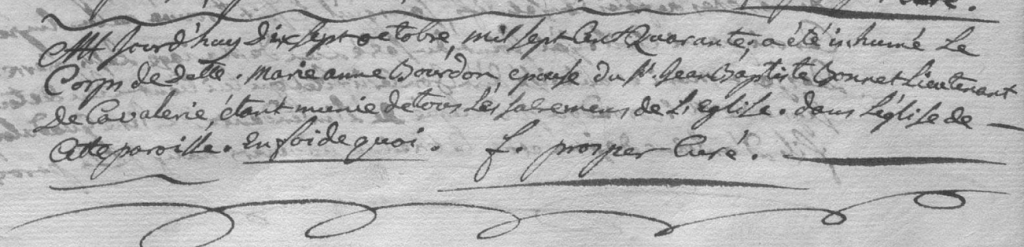 Aujourd'huy dix sept octobre, mil sept cent Quarante, a été inhumé le
Corps de delle. marie anne Bourdon, epouse du Sr. Jean Baptiste Bonnet Lieutenant
de Cavalerie, étant munie de tous les sacremens de L'eglise. dans L'église de
cette paroisse. En foi de quoi. f. prosper Curé.